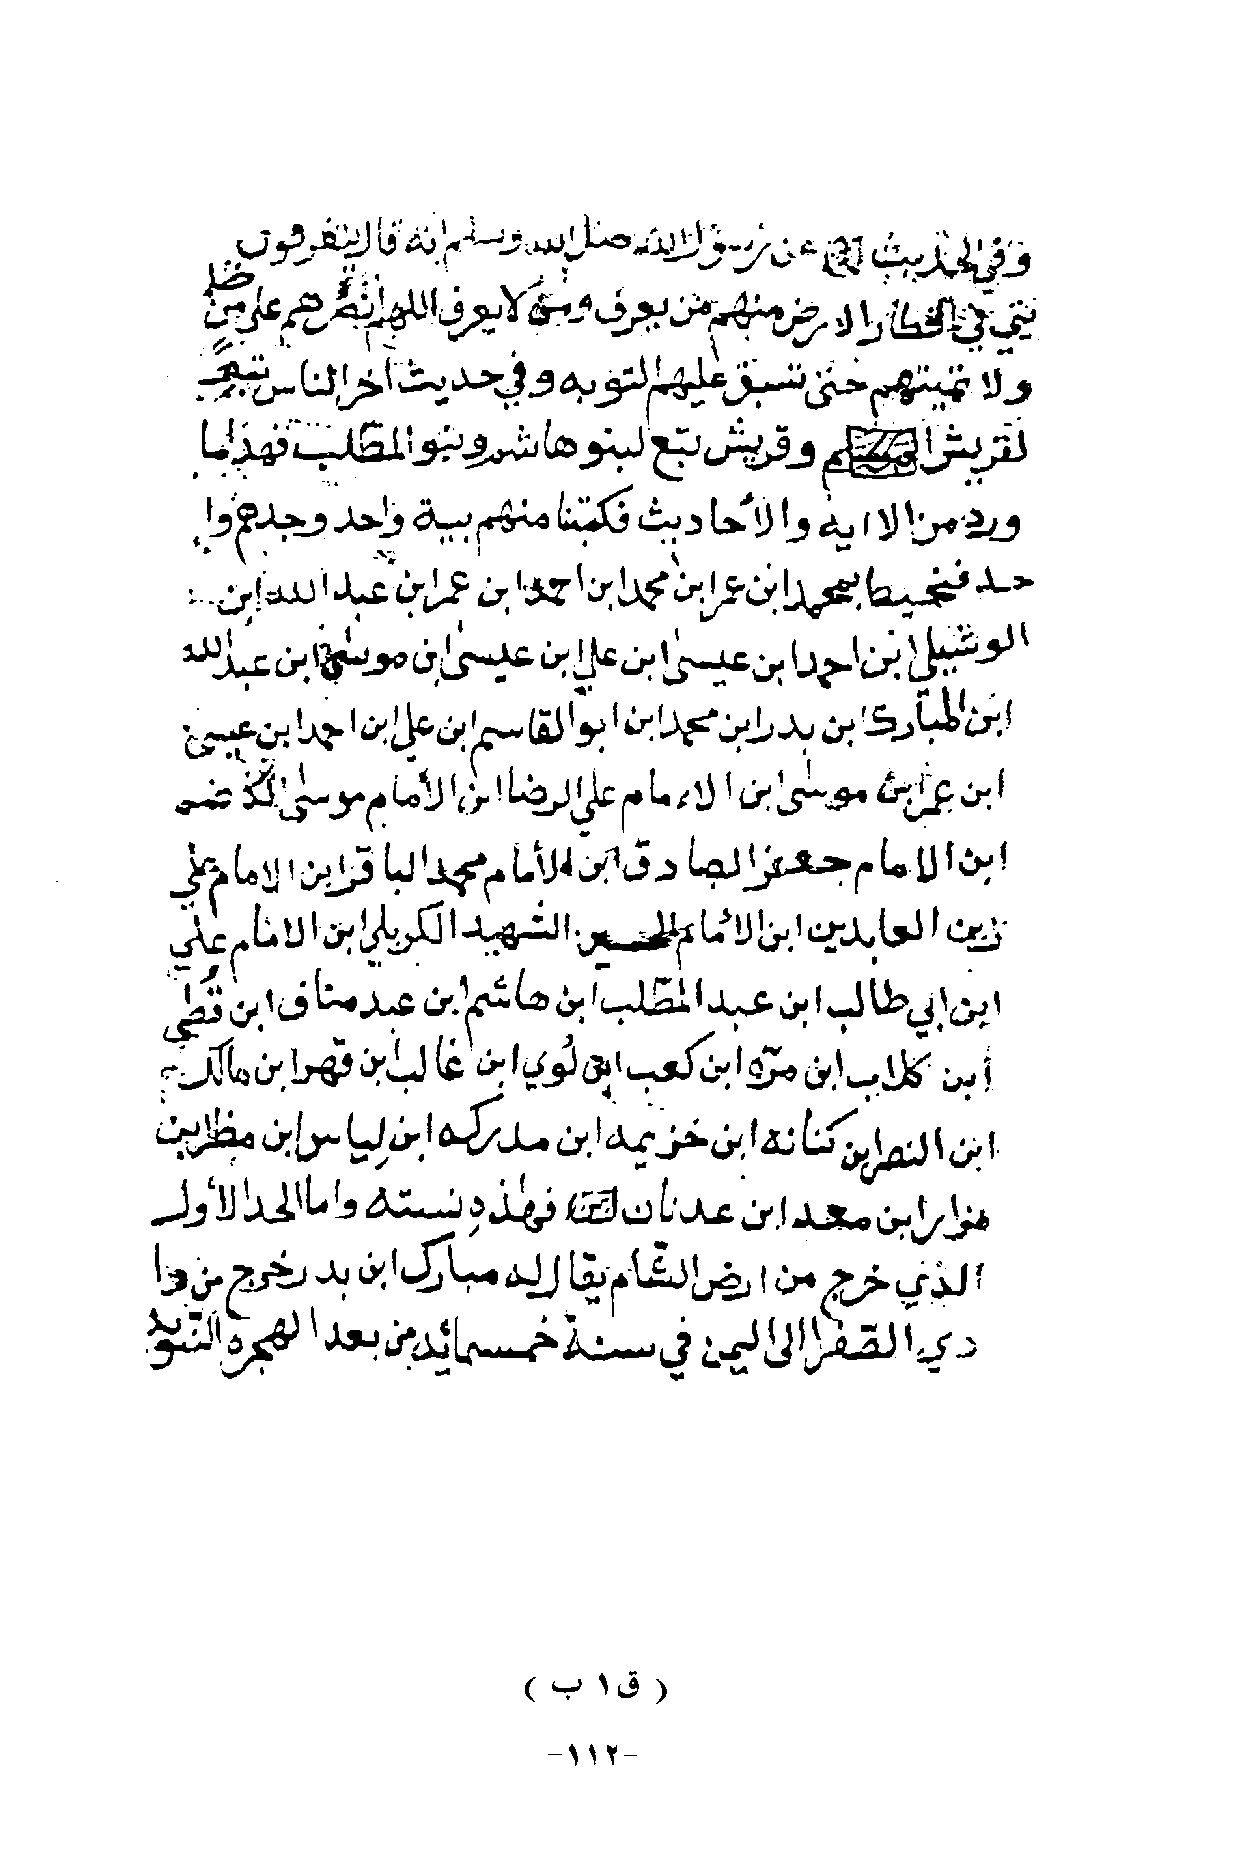 وفي الحديث عن رسول الله صل الله وسلم انه قال يتفرقون
في اقطار الارض منهم من يعرف ومن لا يعرف اللهم انصرهم على من
ولا تميتهم حتى تسبق عليهم التوبه وفي حديث اخر الناس تبع
لقريش وقريش تبع لبنو هاشم وبنو المطلب فهذا ما
ورد من الاايه والاحاديث فكتبنا منهم بية واحد وجدهم وا
حد محمد ابن عمر ابن محمد ابن احمد ابن عمر ابن عبد الله ابن
الوشيلي ابن احمد ابن عيسى ابن علي ابن عيسى ابن موسى ابن عبد الله
ابن المبارك ابن بدر ابن محمد ابن ابو القاسم ابن علي ابن احمد ابن عيسى
ابن عمر ابن موسى ابن الاءمام علي الرضا ابن الأمام موسى الكاضم
ابن الامام جعفر الصادق ابن الأمام محمد الباقر ابن الامام علي
زين العابدين ابن الائمام الحسين الشهيد الكربلي ابن الامام علي
ابن ابي طالب ابن عبد المطلب ابن هاشم ابن عبد مناف ابن قصي
أبن كلاب ابن مرّه ابن كعب ابن لوي ابن غالب ابن فهر ابن مالك
ابن النصر ابن كنانه ابن خزيمه ابن مدركه ابن لياس ابن مظر بن
نزار ابن معد ابن عدنان فهذه نسبته واما الجد الأول
الذي خرج من ارض الشام يقال له مبارك ابن بدر خرج من وا
دي الصفرا الى اليمن في سنة خمسمائه من بعد الهجره النبويه
( ق ١ ب )
-١١٢-